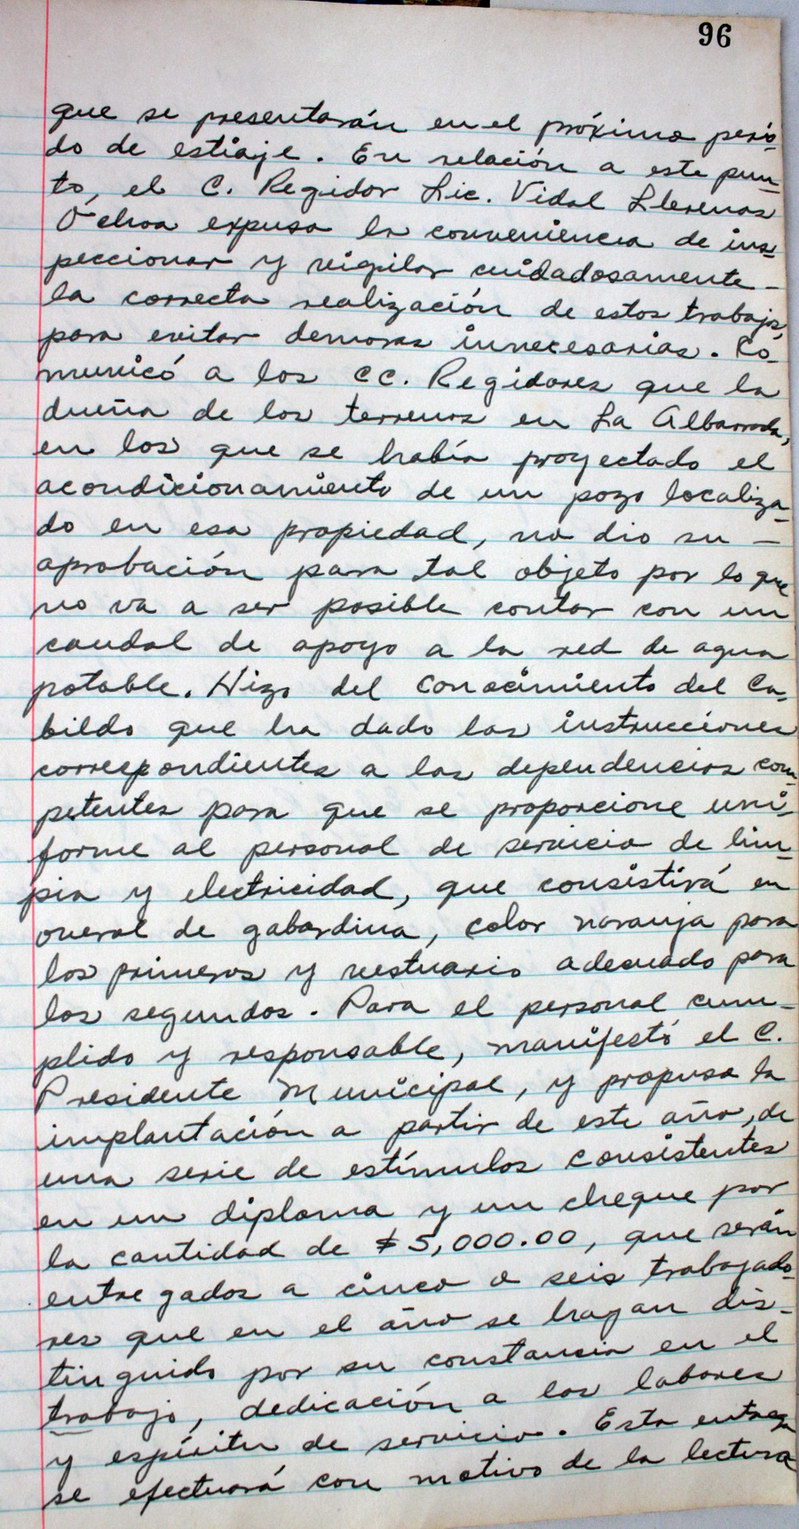 96
que se presentarán en el próximo perío-
do de estiaje. En relación a este pun-
to, el C. Regidor Lic. Vidal Llerenas
Ochoa expuso la conveniencia de ins-
peccionar y vigilar cuidadosamente -
la correcta realización de estos trabajos,
para evitar demoras innecesarias. Co-
municó a los CC. Regidores que la
dueña de los terrenos en La Albarrada,
en los que se había proyectado el
acondicionamiento de un pozo localiza-
do en esa propiedad, no dio su -
aprobación para tal objeto por lo que
no va a ser posible contar con un
caudal de apoyo a la red de agua
potable. Hizo del conocimiento del Ca-
bildo que ha dado las instrucciones
correspondientes a las dependencias com-
petentes para que se proporcione uni-
forme al personal de servicio de lim-
pia y electricidad, que consistirá en
overol de gabardina, color naranja para
los primeros y vestuario adecuado para
los segundos. Para el personal cum-
plido y responsable, manifestó el C.
Presidente Municipal, y propuso la
implantación a partir de este año, de
una serie de estímulos consistentes
en un diploma y un cheque por
la cantidad de $5,000.00, que serán
entregados a cinco o seis trabajado-
res que en el año se hayan dis-
tinguido por su constancia en el
trabajo, dedicación a las labores
y espíritu de servicio. Esta entrega
se efectuará con motivo de la lectura